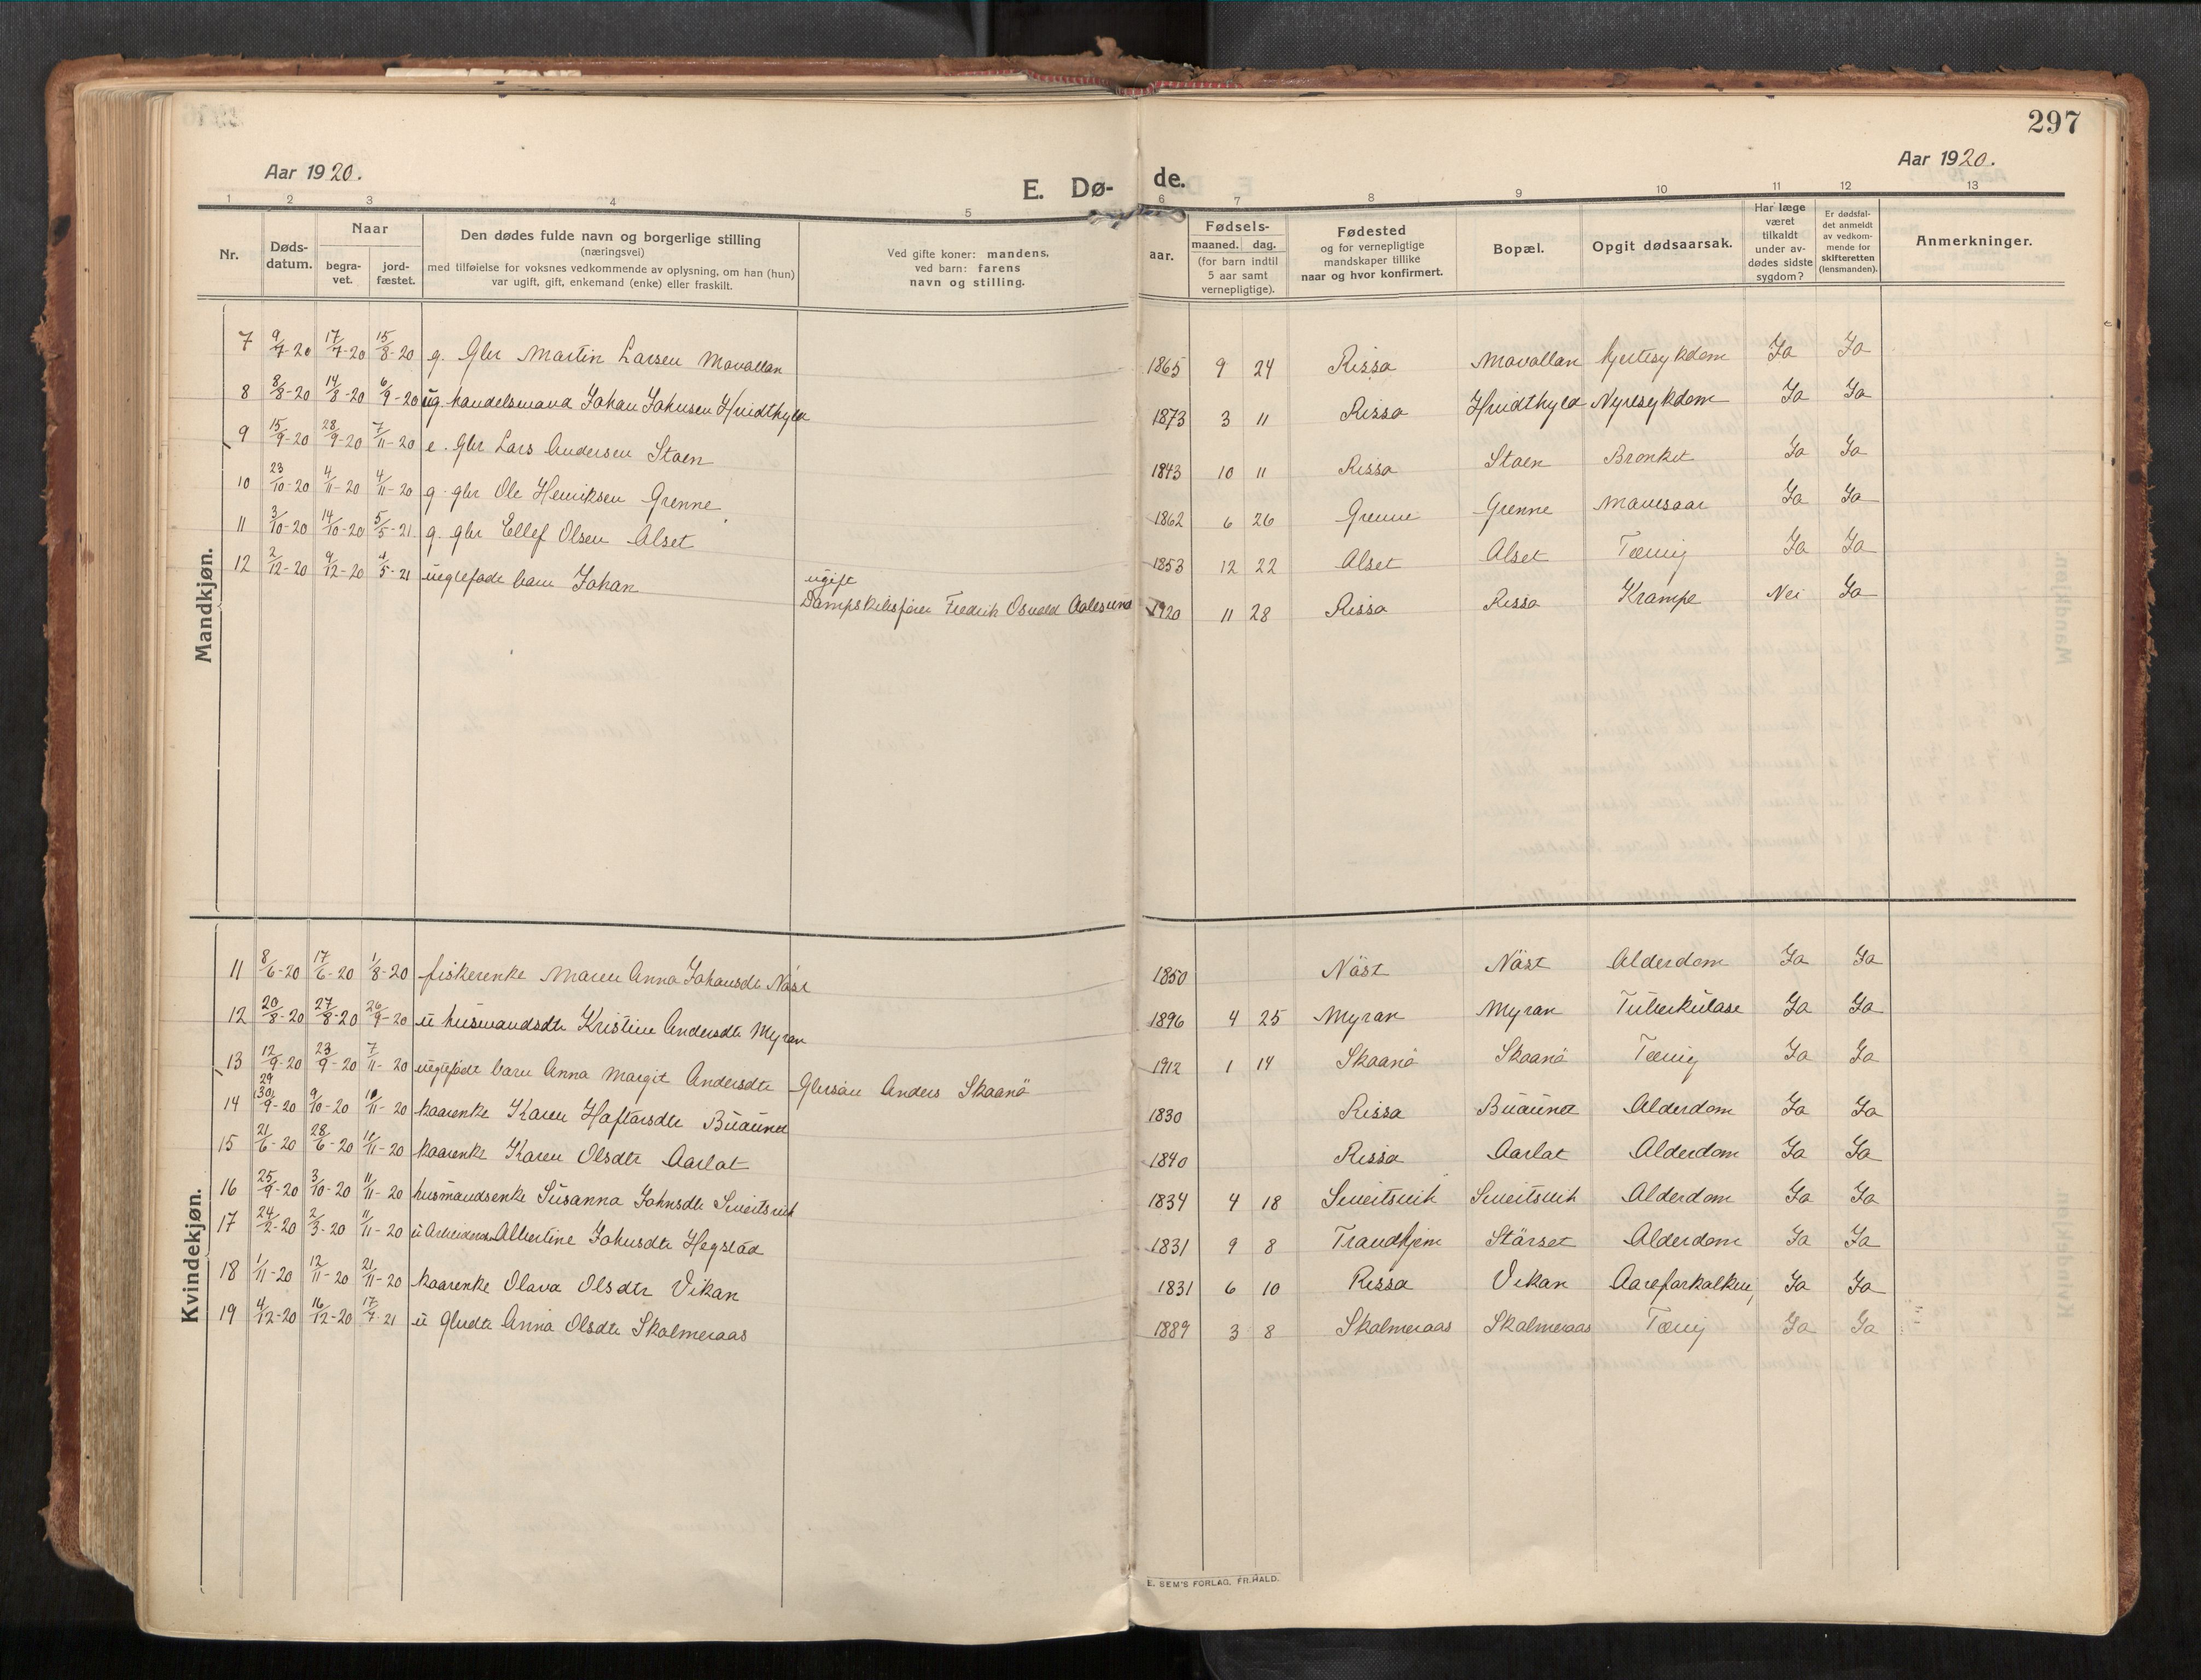 297
Aar 1920.
Aar 1920.
E. Dø- de.
1 2 3 4 5 6 7 8 9 10 11 12 13
Nr.
Døds-
datum.
Naar
begra-
vet.
jord-
fæstet.
Den dødes fulde navn og borgerlige stilling
(næringsvei)
med tilføielse for voksnes vedkommende av oplysning, om han (hun)
var ugift, gift, enkemand (enke) eller fraskilt.
Ved gifte koner: mandens,
ved barn: farens
navn og stilling.
aar.
Fødsels-
maaned. dag.
(for barn indtil
5 aar samt
vernepligtige).
Fødested
og for vernepligtige
mandskaper tillike
naar og hvor konfirmert.
Bopæl.
Opgit dødsaarsak.
Har læge
været
tilkaldt
under av-
dødes sidste
sygdom?
Er dødsfal-
det anmeldt
av vedkom-
mende for
skifteretten
(lensmanden).
Anmerkninger.
Mandkjøn.
7 9/7-20 17/7-20 15/8-20 g. Gbr Martin Larsen Movallan 1865 9 24 Rissa Movallan hjertesykdom Ja Ja
8 8/8-20 14/8-20 6/9-20 ug. handelsmand Johan Johnsen Hvidthyld 1873 3 11 Rissa Hvidthyld Nyresykdom Ja Ja
9 15/9-20 28/9-20 7/11-20 e. Gbr Lars Andersen Staen 1843 10 11 Rissa Staen Bronkit Ja Ja
10 23/10-20 4/11-20 4/11-20 g. gbr Ole Henriksen Grenne 1862 6 26 Grenne Grenne Mavesaar Ja Ja
11 3/10-20 14/10-20 5/5-21 g. gbr Ellef Olsen Alset 1853 12 22 Alset Alset Tæring Ja Ja
12 2/12-20 9/12-20 /5-21 uegtefødt barn Johan ugift
Dampskibsfører Fredrik Osvald Aalesund 1920 11 28 Rissa Rissa Krampe Nei Ja
Kvindekjøn.
11 8/6-20 17/6-20 1/8-20 fiskerenke Maren Anna Johansdtr Näst 1850 Näst Näst Alderdom Ja Ja
12 20/8-20 27/8-20 26/9-20 u husmandsdtr Kristine Andersdtr Myran 1896 4 25 Myran Myran Tuberkulose Ja Ja
13 12/9-20 23/9-20 7/11-20 uegtefødt barn Anna Margit Andersdtr Gbrsøn Anders Skaanö 1912 1 14 Skaanö Skaanö Tæring Ja Ja
14 29(30)/9-20 9/10-20 10/11-20 kaarenke Karen Haftorsdtr Buaunet 1830 Rissa Buaunet Alderdom Ja Ja
15 21/6-20 28/6-20 10/11-20 kaarenke Karen Olsdtr Aarlot 1840 Rissa Aarlot Alderdom Ja Ja
16 25/9-20 3/10-20 11/11-20 husmandsenke Susanna Johnsdtr Sneitsvik 1834 4 18 Sneitsvik Sneitsvik Alderdom Ja Ja
17 24/2-20 2/3-20 11/11-20 u Albertine Johnsdtr Hegstad 1831 9 8 Trondhjem Stärset Alderdom Ja Ja
18 1/11-20 12/11-20 21/11-20 kaarenke Olava Olsdtr Vikan 1831 6 10 Rissa Vikan Aareforkalkn, Ja Ja
19 4/12-20 16/12-20 17/7-21 u Gbrdtr Anna Olsdtr Skolmeraas 1889 3 8 Skolmeraas Skolmeraas Tæring Ja Ja
E. SEM'S FORLAG, FR.HALD.